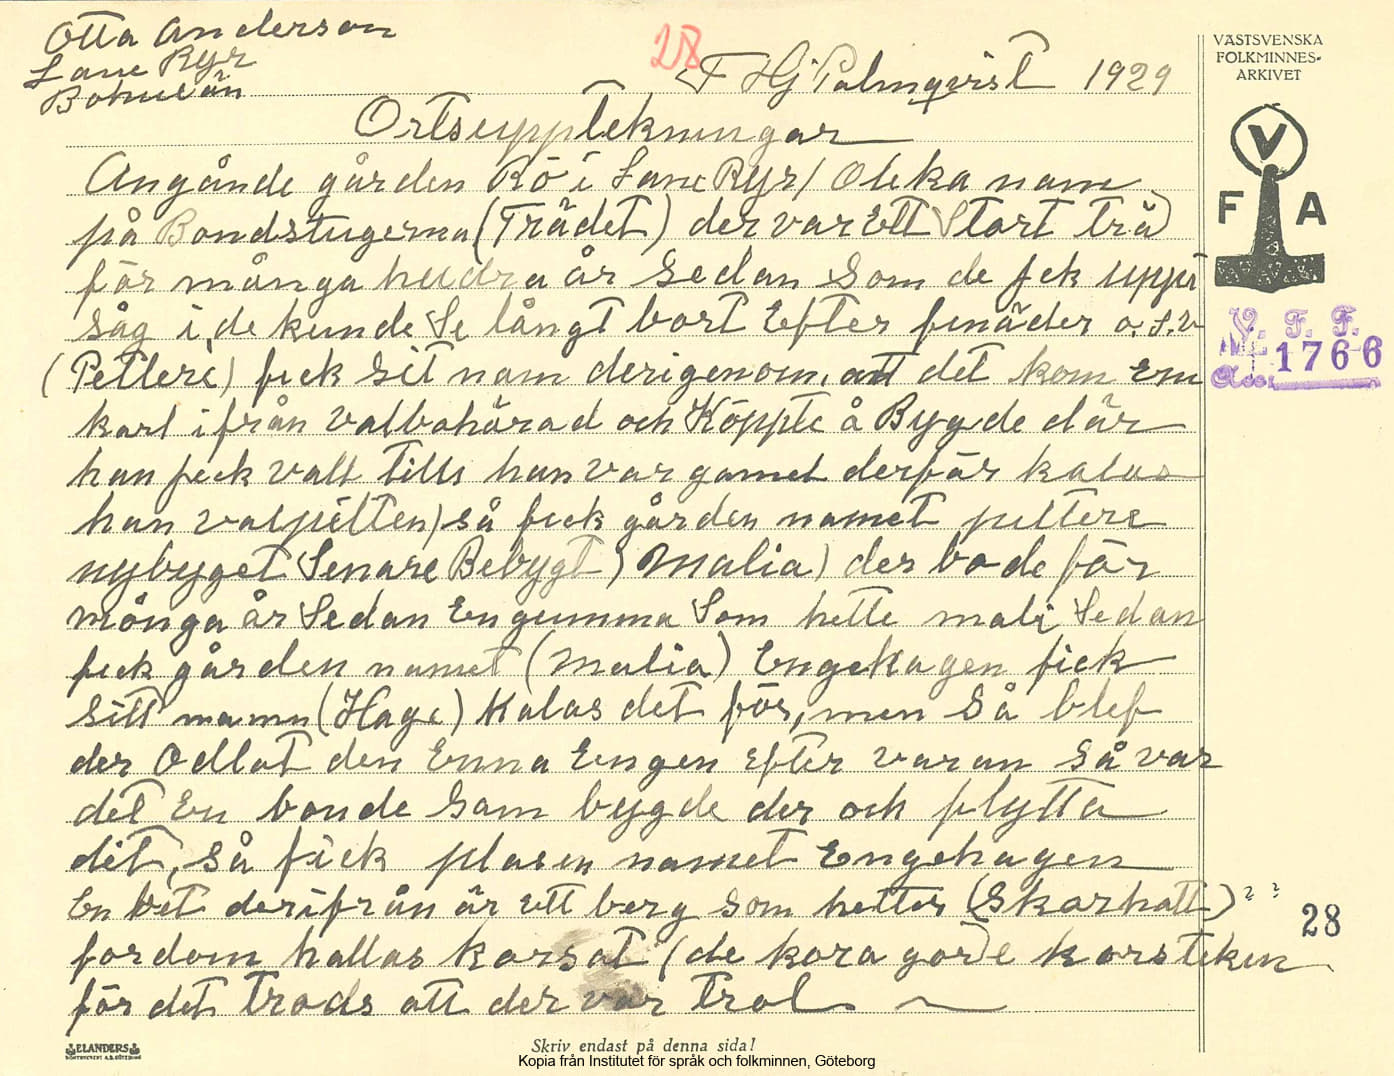 Otto Anderson
Lane Ryr
Bohuslän
28
F Hj Palmqvist 1929
VÄSTSVENSKA
FOLKMINNES-
ARKIVET
V
F A
Ortsupptekningar
Angånde gården Rö i Lane Ryr / Oleka nam
på Bondstugerna (Trädet) der var Ett Stort trä)
för många hudra år Sedan Som de fck uppi
såg i, de kunde Se långt bort Efter finäder o. s. v
V. F. F.
1766
(Petlere) fick Sit nam derigenom, att det kom En
karl ifrån Valbohärad och Köppte å Bygde där
han feck valt tills han var gamel derför kalas
han valpitten) så feck gården namet pittere
nybyget Senare Bebygt) Malia) der bode för
många år Sedan En gumma Som hette mali Sedan
feck gården namet (Malia) Engehagen fick
Sitt mamn (Hage) Kalas det för, men Så blef
der Odlat den Enna Engen Efter varan Så var
det En bonde Som bygde der och flytta
dit, Så fick plasen namet Engehagen
En bet derifrån är ett berg som hetter (Skarhatt) ? ?
28
fordom kallas korsat (de kora gorde korsteken
för det trods att der var trol.
ELANDERS
Skriv endast på denna sida!
Kopia från Institutet för språk och folkminnen, Göteborg